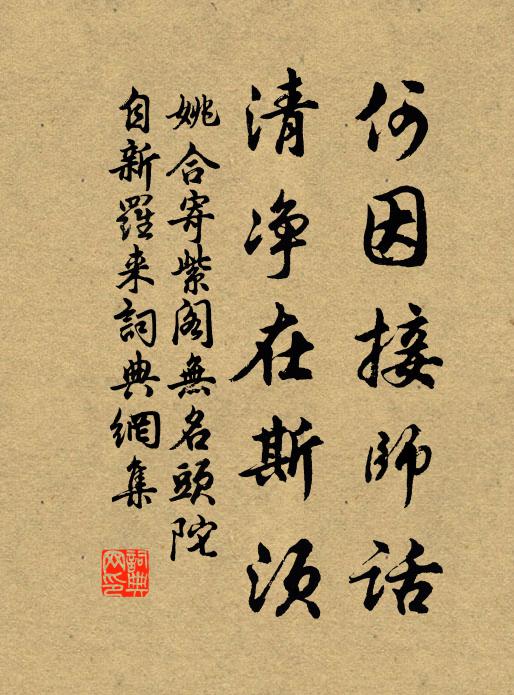 何因接師話
清净在斯須
姚合寄紫閣無名頭陀
自新羅来詞典網集
詞典
网印